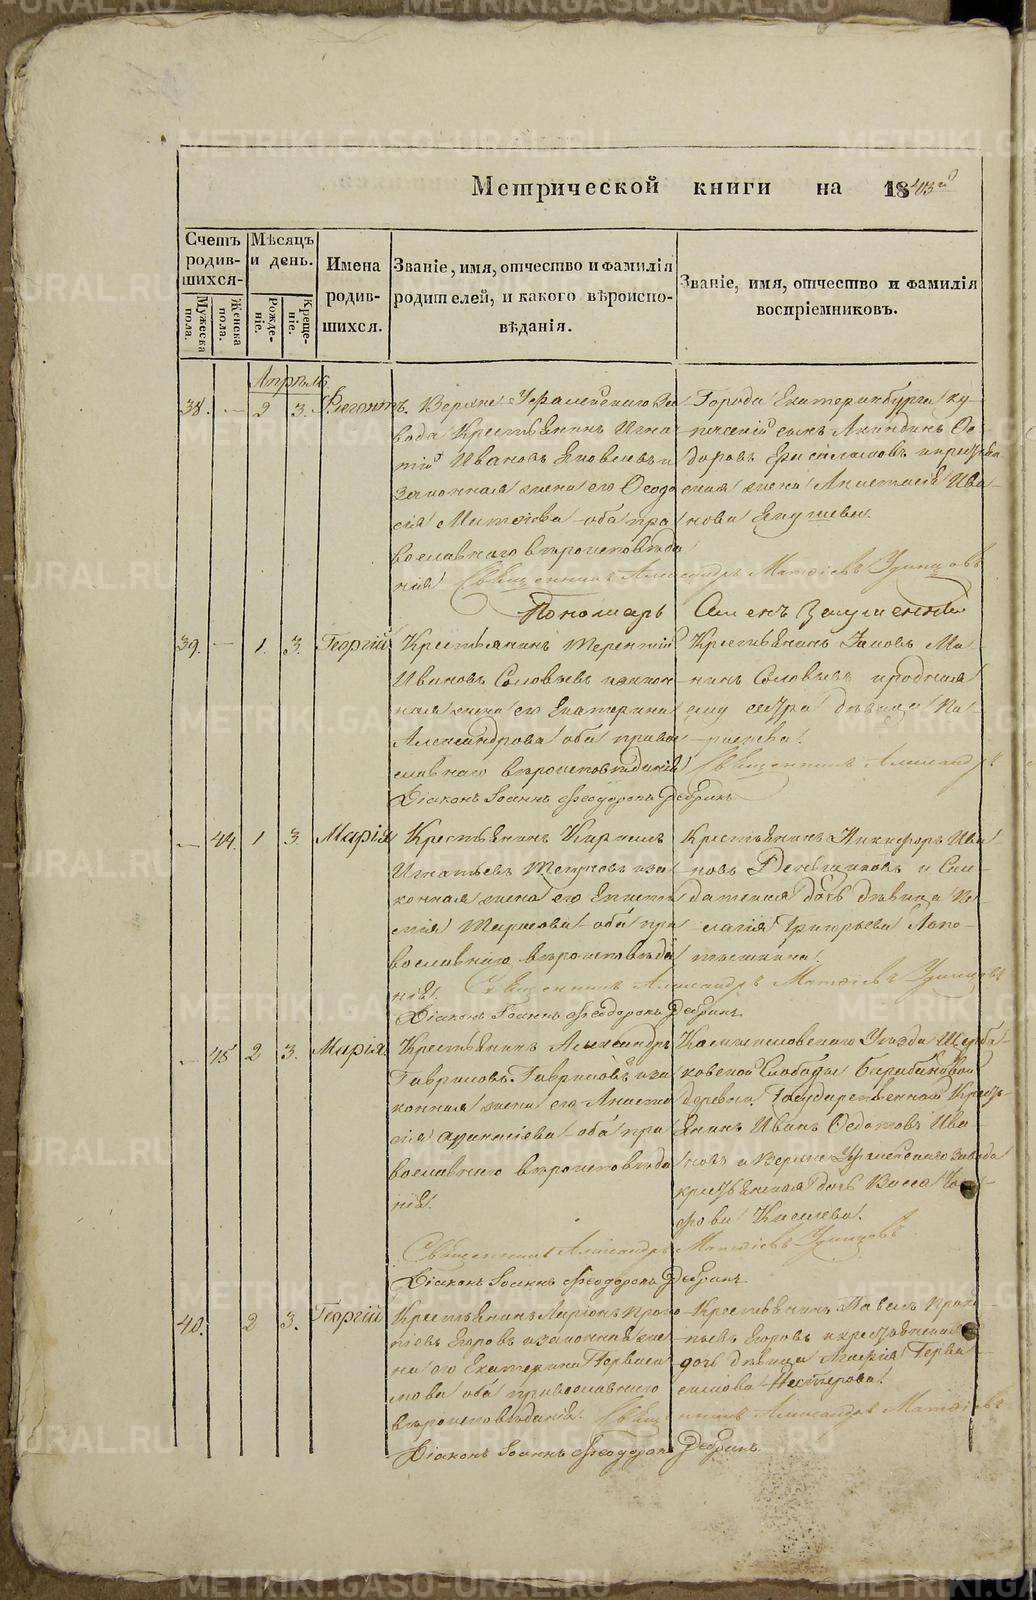 Метрической книги на 1843й
Счетъ родив-шихся.
Мужеска пола.
Женска пола.
Мѣсяцъ и день.
Рожде-ніе.
Креще-ніе.
Имена родив-шихся.
Званіе, имя, отчество и фамилія родителей, и какого вѣроиспо-вѣданія.
Званіе, имя, отчество и фамилія воспріемниковъ.
Апрѣль
38. — 2 3. Флегонтъ.
Верхне Уфалейскаго За
вода Крестьянинъ Игна
тій Ивановъ Яковлевъ и
законная жена его Ѳеодо
сія Матѳѣева оба пра
вославнаго вѣроисповѣда
нія
Города Екатеринбурга ку-
печескій сынъ Акиндинъ Ѳе
доровъ
ская жена Анастасія Ива
нова
Священникъ Александръ Матѳіевъ Удинцовъ
Пономарь
39. — 1. 3. Георгій
Крестьянинъ Терентій
Ивановъ Соловьевъ и закон
ная жена его Екатерина
Александрова оба право
славнаго вѣроисповѣданія
Крестьянинъ Иаковъ Ма-
нинъ Соловьевъ и родная
ему сестра дѣвица Па-
раскева.
Священникъ Александръ
Діаконъ Іоаннъ Феодоровъ Дебринъ
— 44. 1 3. Марія
Крестьянинъ Кириллъ
Игнатьевъ и за
конная жена его
Тарасова оба пра
вославнаго вѣроисповѣда
нія.
Крестьянинъ Никифоръ Ива
новъ Деньщиковъ и Сол-
датская дочь дѣвица Пе-
лагія Григорьева Лапо-
Священникъ Александръ Матѳіевъ Удинцовъ
Діаконъ Іоаннъ Феодоровъ Дебринъ
— 45 2 3. Марія
Крестьянинъ Александръ
Гавриловъ Гавриловъ и за
конная жена его Анаста
сія Афанасіева оба пра
вославнаго вѣроисповѣда
нія.
Камышловскаго Уѣзда Щерба-
ковской Слободы Барабановой
деревни Государственный Кресть-
янинъ Иванъ Ѳедотовъ Ива
новъ и Верхне Уфалейскаго завода
крестьянская дочь Васса
Киселева.
Священникъ Александръ Матѳіевъ Удинцовъ
Діаконъ Іоаннъ Феодоровъ Дебринъ
40. 2 3. Георгій
Крестьянинъ Ларіонъ Проко
піевъ Егоровъ и законная же
на его Екатерина
оба православнаго
вѣроисповѣданія.
Крестьянинъ Павелъ Проко
пьевъ Егоровъ и крестьянская
дочь дѣвица Марія Герва
симова Нестерова.
Священникъ Александръ Матѳіевъ
Діаконъ Іоаннъ Феодоровъ Дебринъ
METRIKI.GASO-URAL.RU